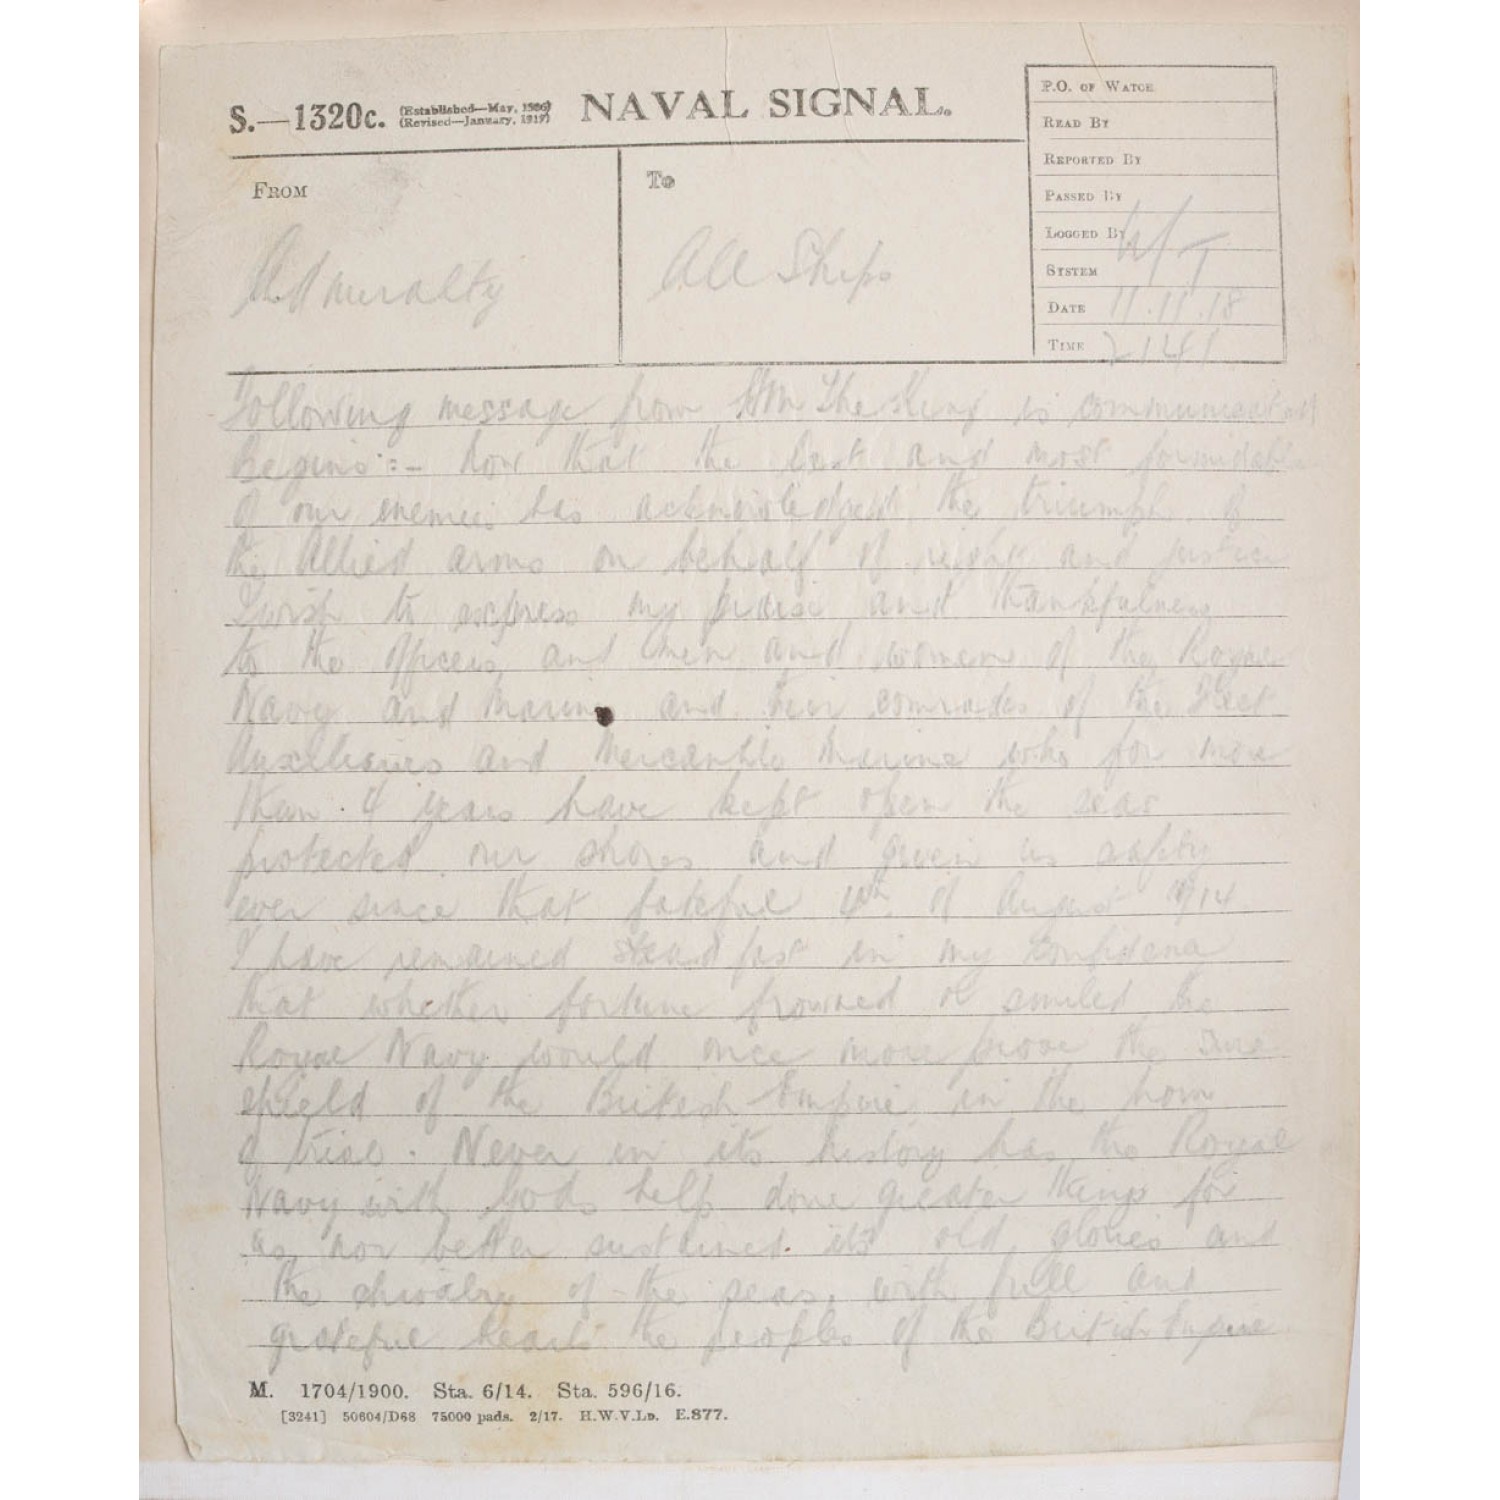 S.—1320c. (Established—May, 1906) (Revised—January, 1917) NAVAL SIGNAL.
P.O. OF WATCH
READ BY
REPORTED BY
PASSED BY
LOGGED BY
SYSTEM W/T
DATE 11.11.18
TIME 2141
FROM
Admiralty
TO
All Ships
Following message from HM The King is communicated
Begins:- Now that the last and most formidable
of our enemies has acknowledged the triumph of
the Allied arms on behalf of right and justice
I wish to express my praise and thankfulness
to the officers and men and women of the Royal
Navy and Marines and their comrades of the Fleet
Auxiliaries and Mercantile Marine who for more
than 4 years have kept open the seas
protected our shores and given us safety
ever since that fateful 4th of August 1914
I have remained steadfast in my confidence
that whether fortune frowned or smiled the
Royal Navy would once more prove the sure
shield of the British Empire in the hour
of trial. Never in its history has the Royal
Navy with Gods help done greater things for
us nor better sustained its old glories and
the chivalry of the seas. with full and
grateful hearts the peoples of the British Empire
M. 1704/1900. Sta. 6/14. Sta. 596/16.
[3241] 50604/D68 75000 pads. 2/17. H.W.V.LD. E.877.